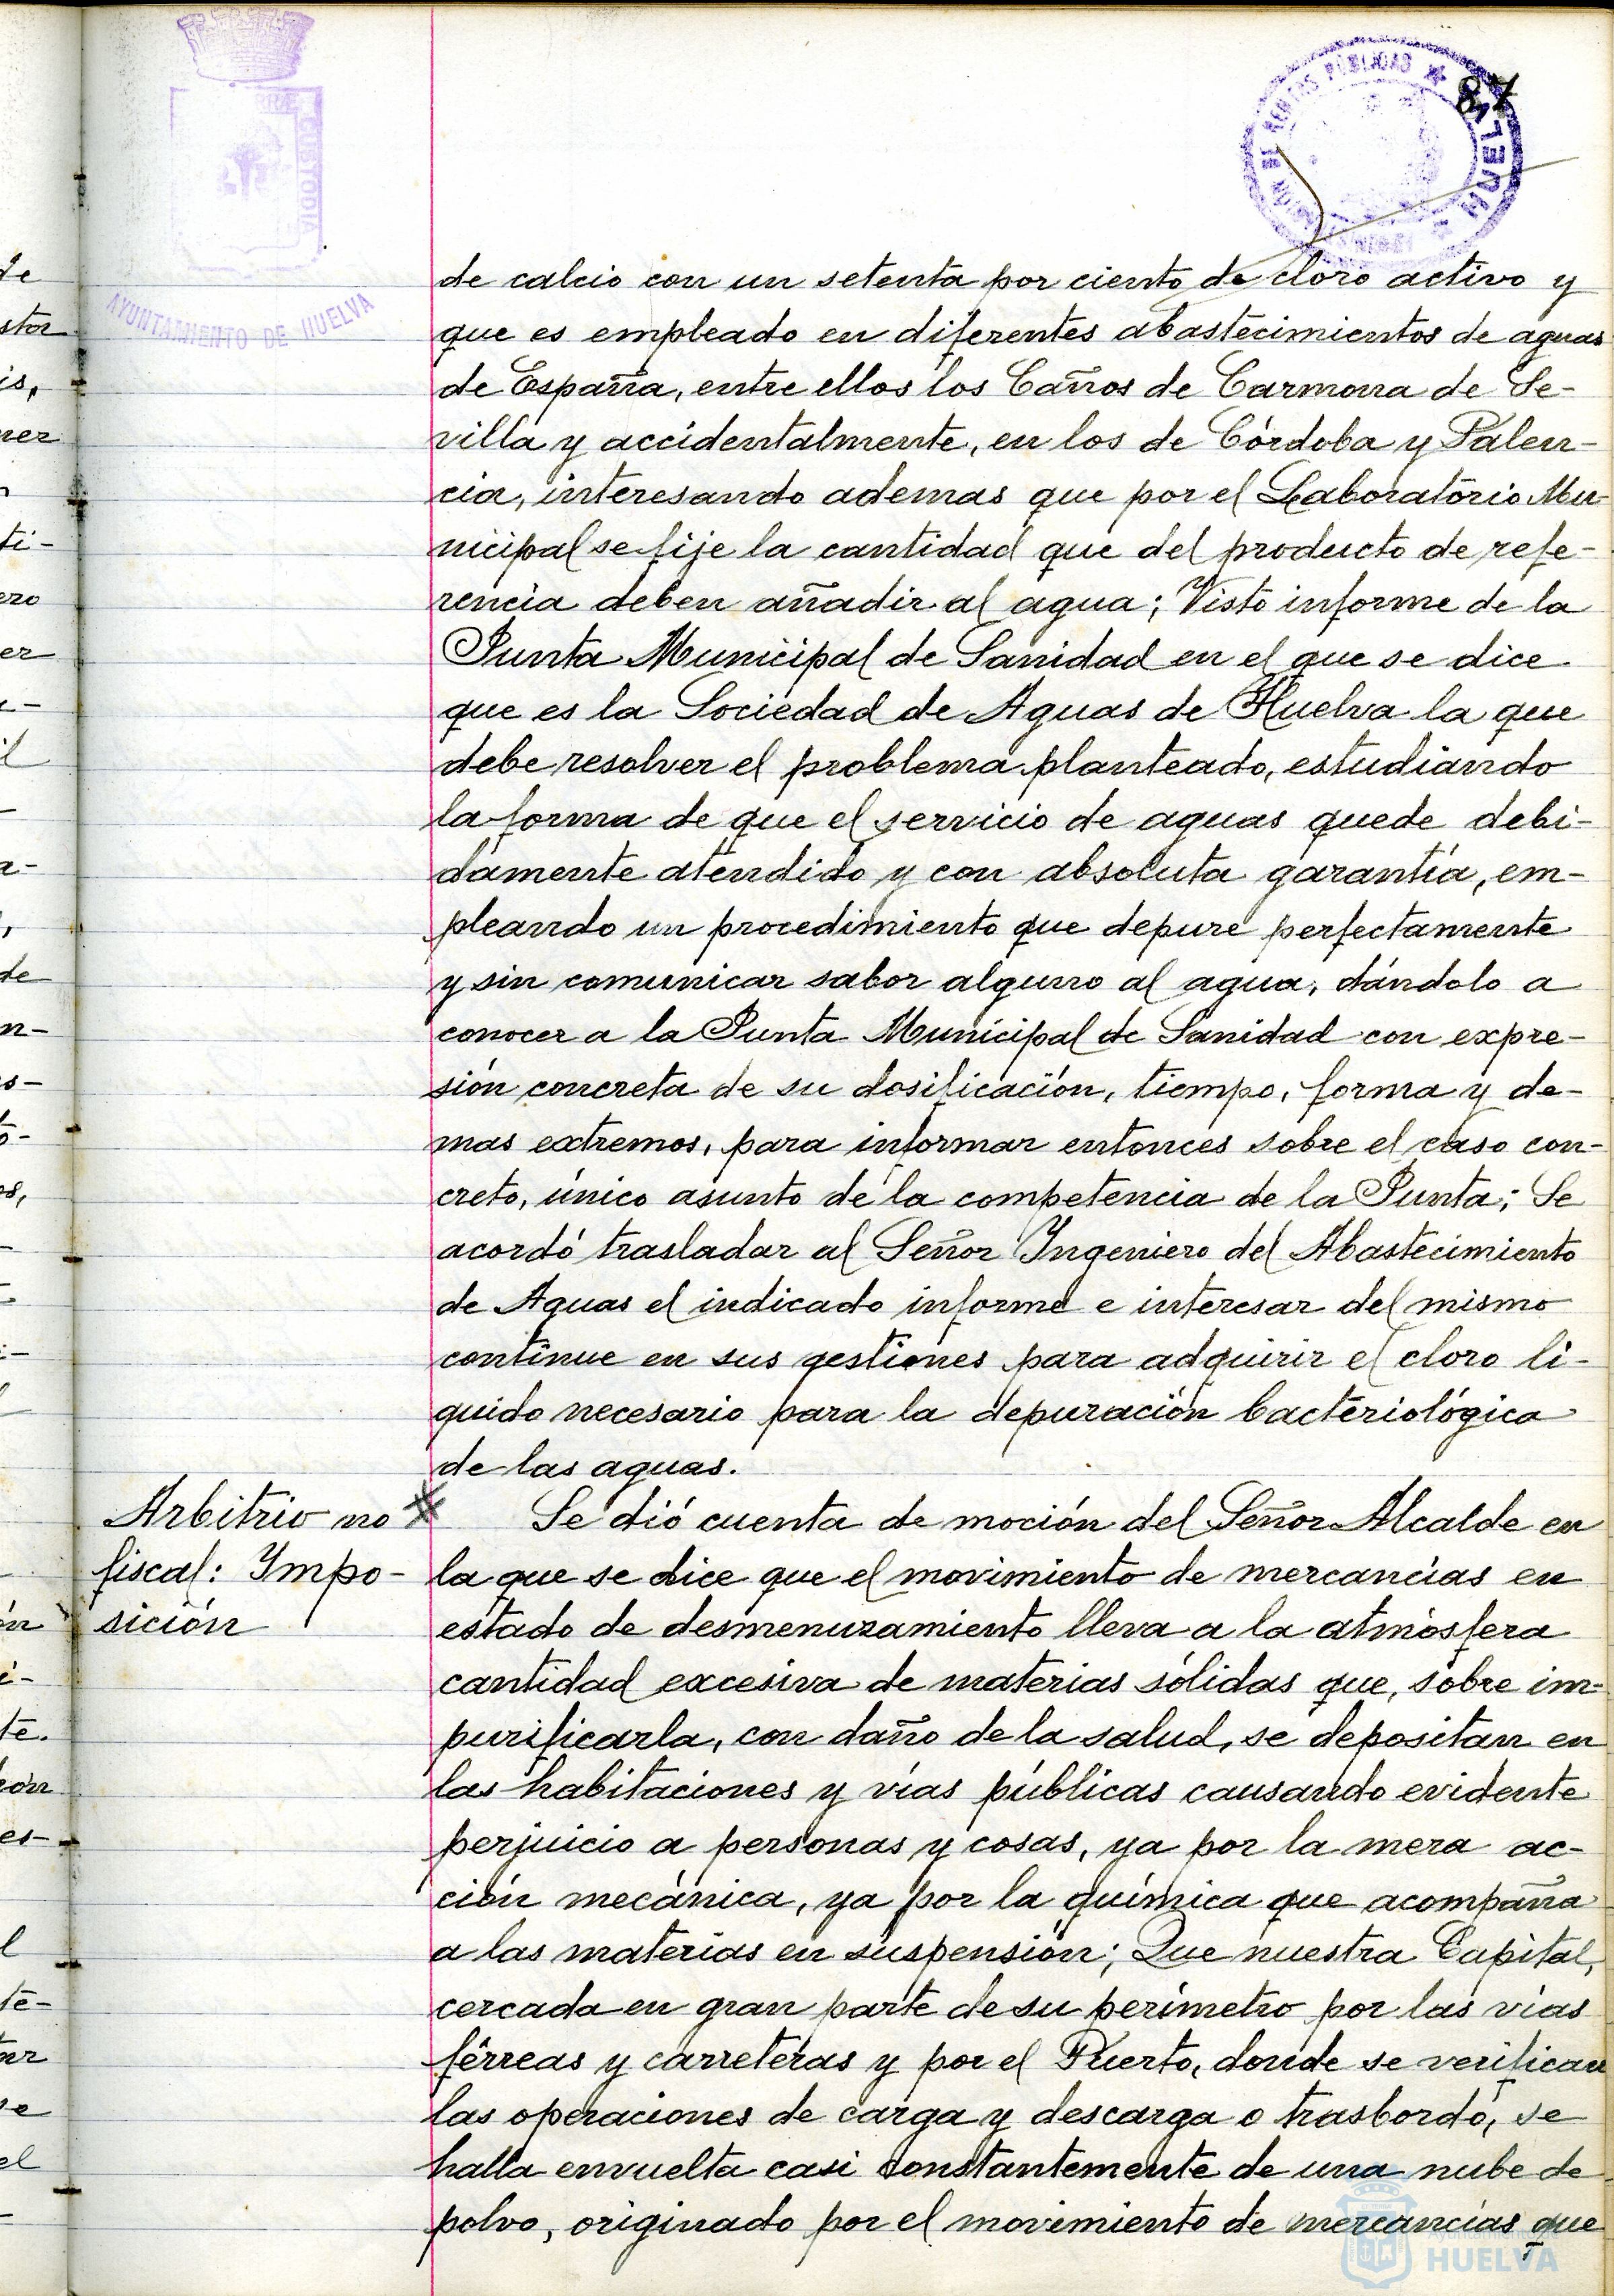 87
PORTUS CUSTODIA
AYUNTAMIENTO DE HUELVA
PÚBLICAS
HUELVA
de calcio con un setenta por ciento de cloro activo y
que es empleado en diferentes abastecimientos de aguas
de España, entre ellos los Caños de Carmona de Se-
villa y accidentalmente, en los de Córdoba y Palen-
cia, interesando ademas que por el Laboratorio Mu-
nicipal se fije la cantidad que del producto de refe-
rencia deben añadir al agua; Visto informe de la
Junta Municipal de Sanidad en el que se dice
que es la Sociedad de Aguas de Huelva la que
debe resolver el problema planteado, estudiando
la forma de que el servicio de aguas quede debi-
damente atendido y con absoluta garantía, em-
pleando un procedimiento que depure perfectamente
y sin comunicar sabor alguno al agua, dándolo a
conocer a la Junta Municipal de Sanidad con expre-
sión concreta de su dosificación, tiempo, forma y de-
mas extremos, para informar entonces sobre el caso con-
creto, único asunto de la competencia de la Junta; Se
acordó trasladar al Señor Ingeniero del Abastecimiento
de Aguas el indicado informe e interesar del mismo
continue en sus gestiones para adquirir el cloro li-
quido necesario para la depuración bacteriológica
de las aguas.
Arbitrio no
fiscal: Impo-
sición
Se dió cuenta de moción del Señor Alcalde en
la que se dice que el movimiento de mercancías en
estado de desmenuzamiento lleva a la atmósfera
cantidad excesiva de materias sólidas que, sobre im-
purificarla, con daño de la salud, se depositan en
las habitaciones y vías públicas causando evidente
perjuicio a personas y cosas, ya por la mera ac-
ción mecánica, ya por la química que acompaña
a las materias en suspensión; Que nuestra Capital,
cercada en gran parte de su perímetro por las vías
férreas y carreteras y por el Puerto, donde se verifican
las operaciones de carga y descarga o trasbordo, se
halla envuelta casi constantemente de una nube de
polvo, originado por el movimiento de mercancías que
HUELVA